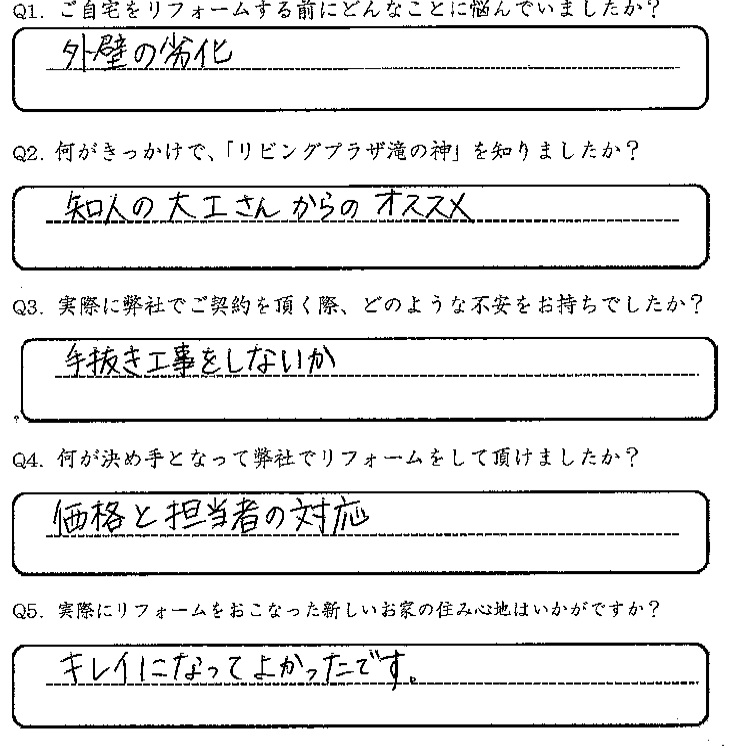 Q1. ご自宅をリフォームする前にどんなことに悩んでいましたか？
外壁の劣化
Q2. 何がきっかけで、「リビングプラザ滝の神」を知りましたか？
知人の大工さんからのオススメ
Q3. 実際に弊社でご契約を頂く際、どのような不安をお持ちでしたか？
手抜き工事をしないか
Q4. 何が決め手となって弊社でリフォームをして頂けましたか？
価格と担当者の対応
Q5. 実際にリフォームをおこなった新しいお家の住み心地はいかがですか？
キレイになってよかったです。